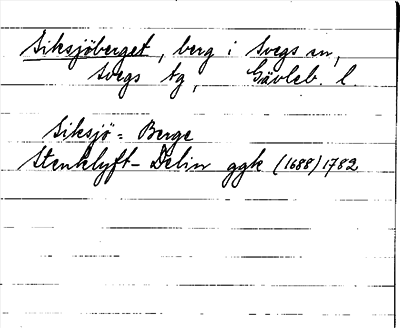 Siksjöberget, berg i Svegs sn,
Svegs tg, Gävleb. l.
Siksjö = Berge
Stenklyft-Delin ggk (1688) 1782